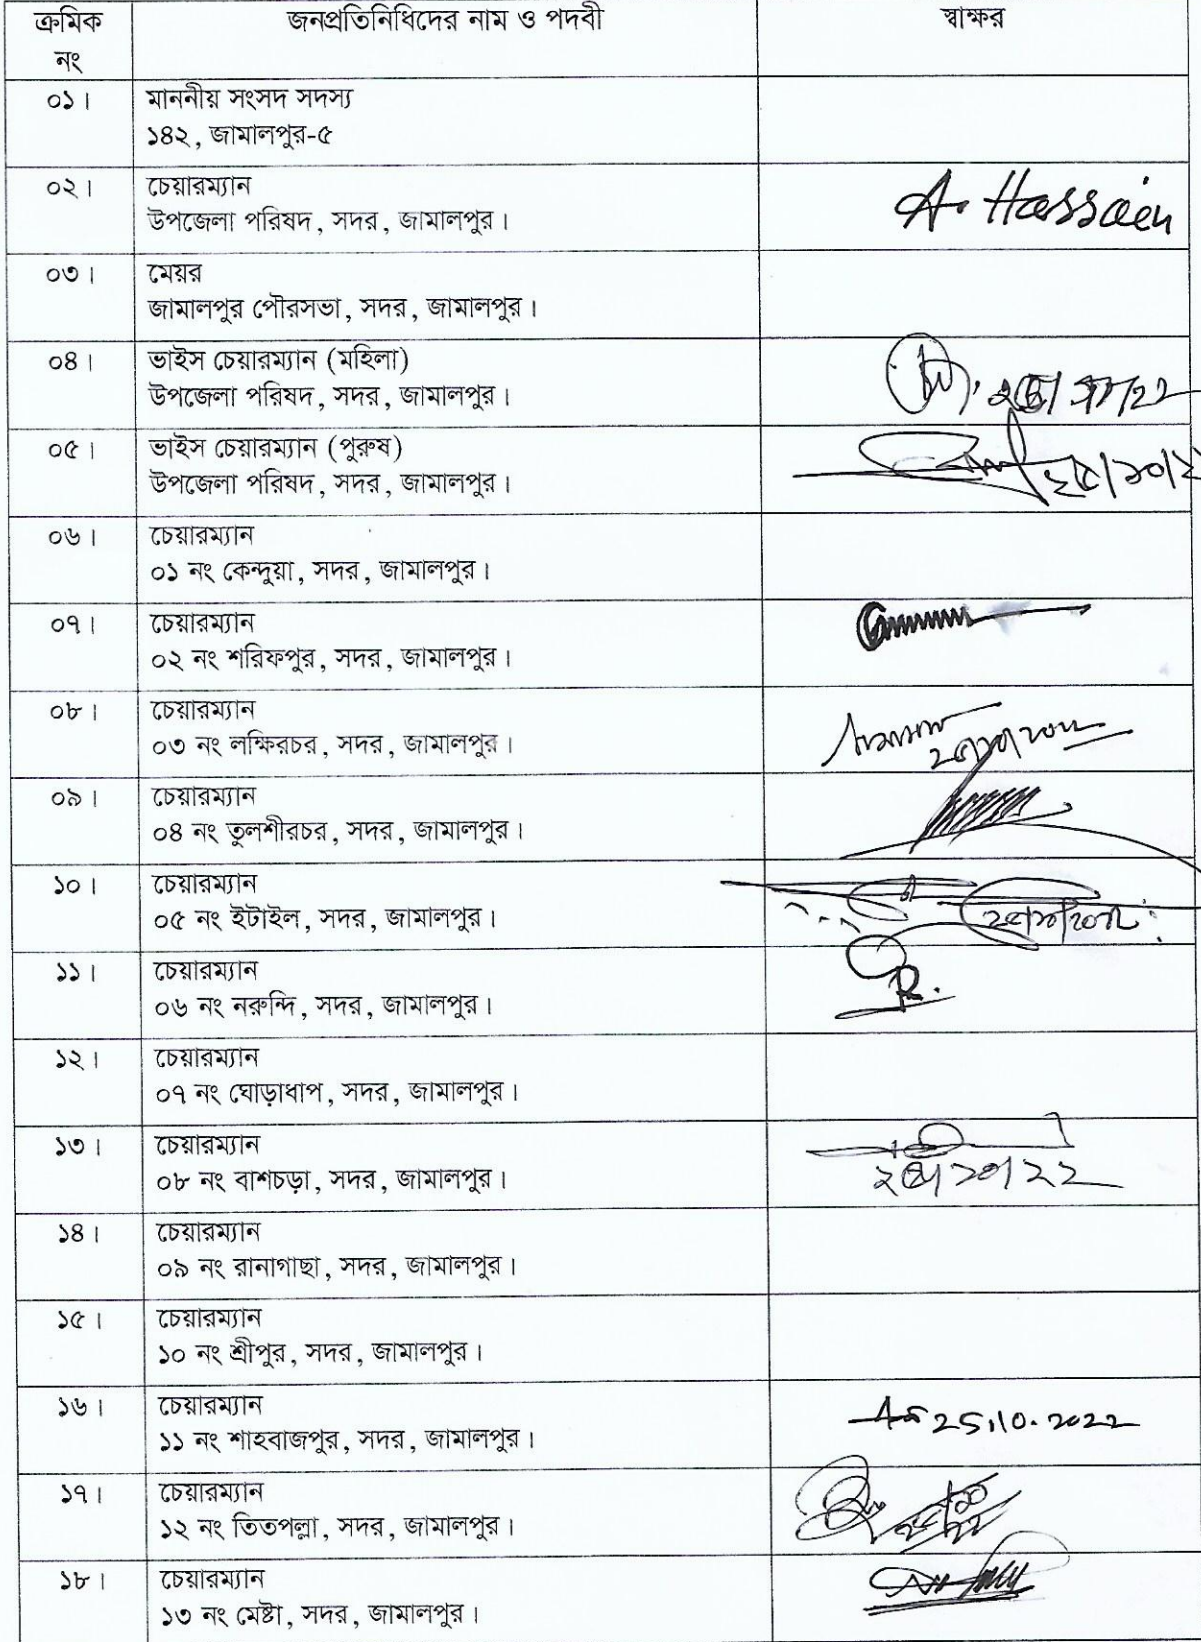 ক্রমিক নং জনপ্রতিনিধিদের নাম ও পদবী স্বাক্ষর
০১। মাননীয় সংসদ সদস্য
১৪২, জামালপুর-৫
০২। চেয়ারম্যান
উপজেলা পরিষদ, সদর, জামালপুর।
A. Hossain
০৩। মেয়র
জামালপুর পৌরসভা, সদর, জামালপুর।
০৪। ভাইস চেয়ারম্যান (মহিলা)
উপজেলা পরিষদ, সদর, জামালপুর।
০৫। ভাইস চেয়ারম্যান (পুরুষ)
উপজেলা পরিষদ, সদর, জামালপুর।
০৬। চেয়ারম্যান
০১ নং কেন্দুয়া, সদর, জামালপুর।
০৭। চেয়ারম্যান
০২ নং শরিফপুর, সদর, জামালপুর।
০৮। চেয়ারম্যান
০৩ নং লক্ষিরচর, সদর, জামালপুর।
০৯। চেয়ারম্যান
০৪ নং তুলশীরচর, সদর, জামালপুর।
১০। চেয়ারম্যান
০৫ নং ইটাইল, সদর, জামালপুর।
১১। চেয়ারম্যান
০৬ নং নরুন্দি, সদর, জামালপুর।
১২। চেয়ারম্যান
০৭ নং ঘোড়াধাপ, সদর, জামালপুর।
১৩। চেয়ারম্যান
০৮ নং বাশচড়া, সদর, জামালপুর।
২৫/১০/২২
১৪। চেয়ারম্যান
০৯ নং রানাগাছা, সদর, জামালপুর।
১৫। চেয়ারম্যান
১০ নং শ্রীপুর, সদর, জামালপুর।
১৬। চেয়ারম্যান
১১ নং শাহবাজপুর, সদর, জামালপুর।
25.10.2022
১৭। চেয়ারম্যান
১২ নং তিতপল্লা, সদর, জামালপুর।
১৮। চেয়ারম্যান
১৩ নং মেষ্টা, সদর, জামালপুর।